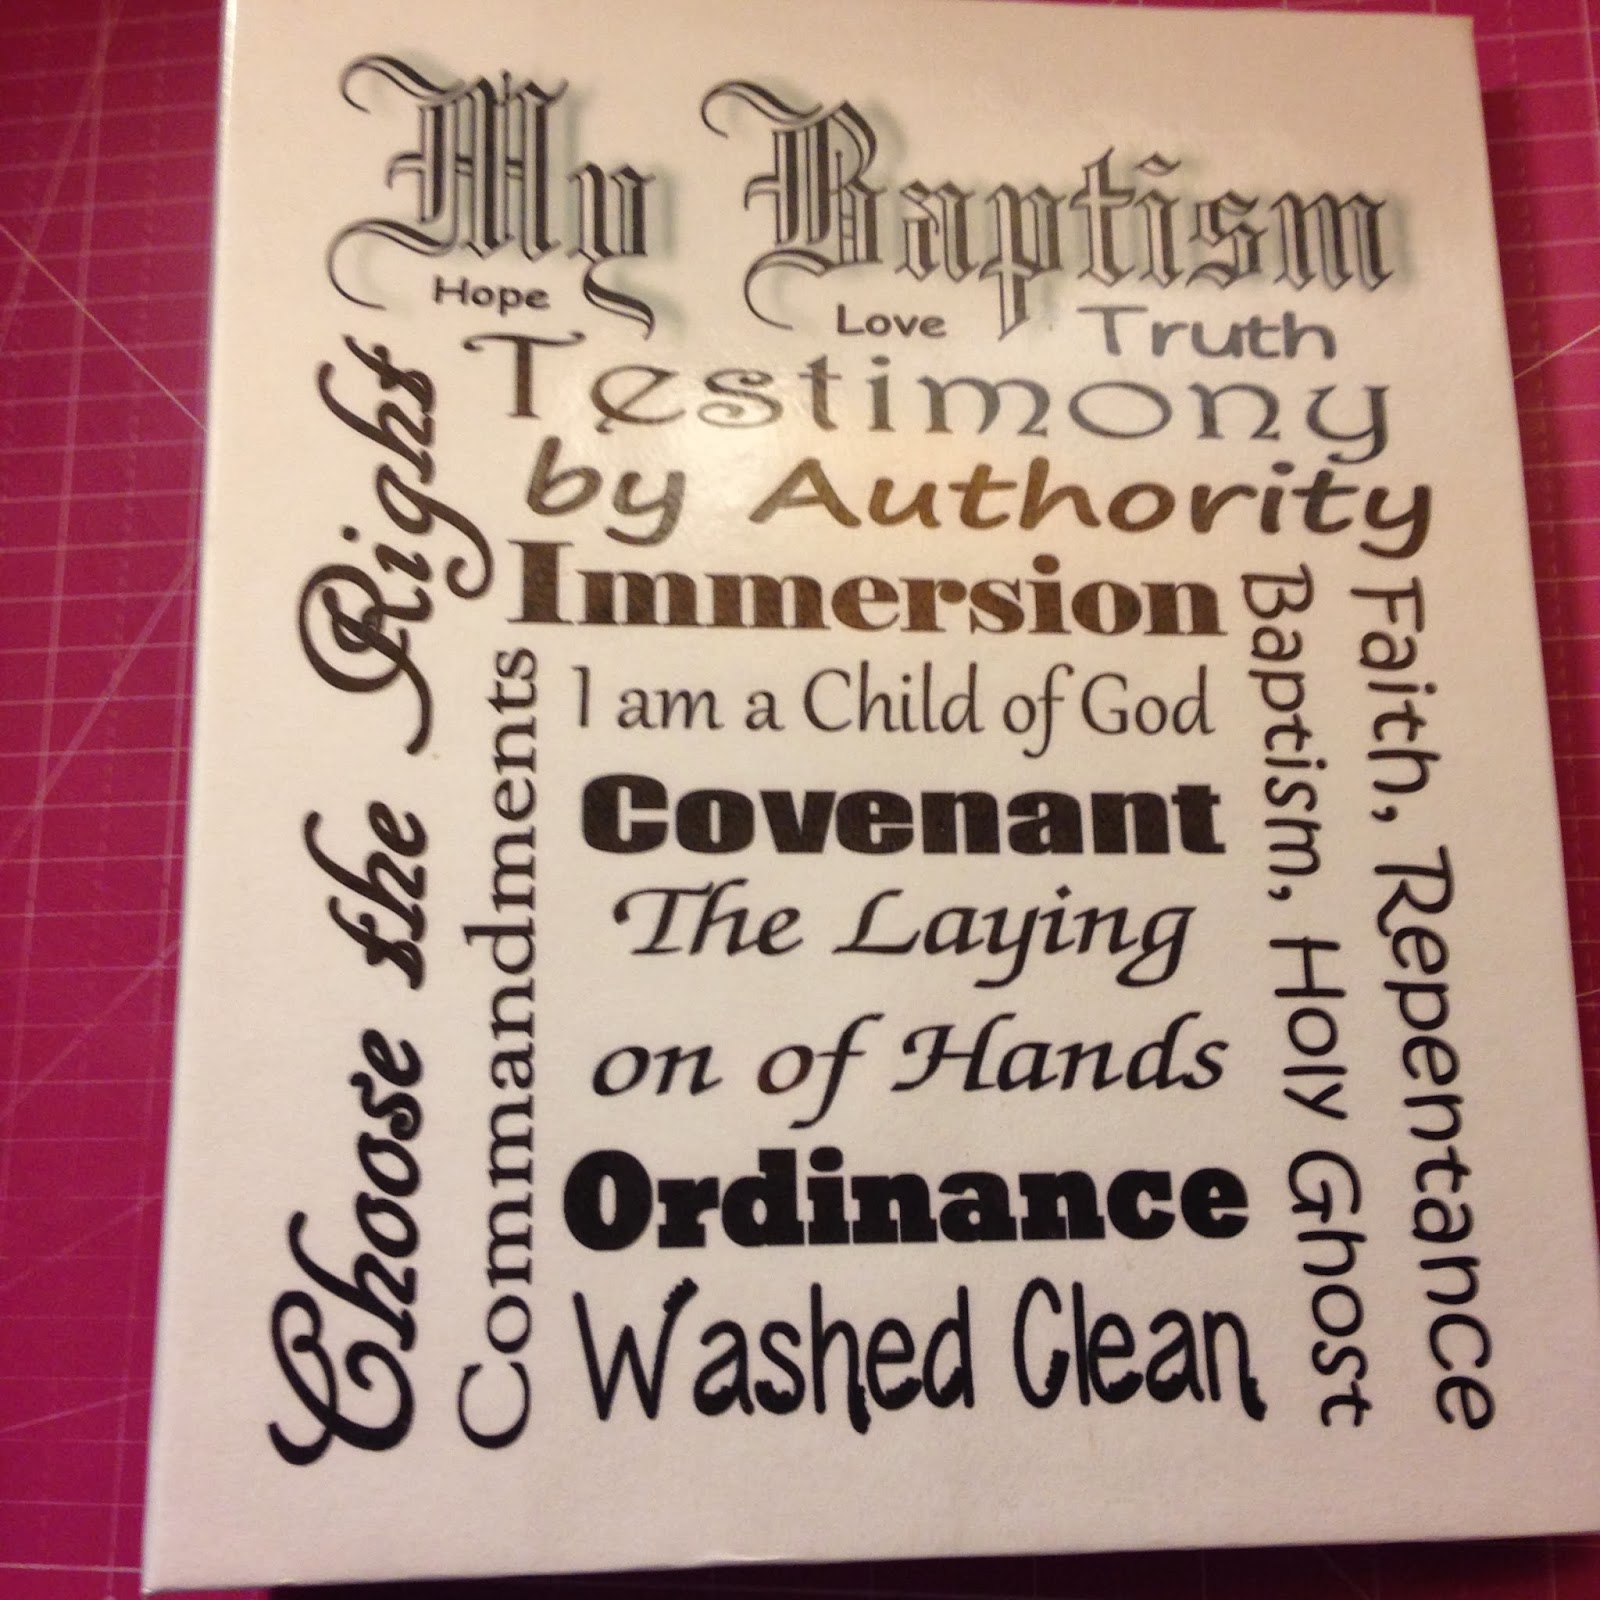 My Baptism
Hope
Love
Truth
Testimony
by Authority
Immersion
I am a Child of God
Covenant
The Laying
on of Hands
Ordinance
Washed Clean
Choose the Right
Commandments
Faith, Repentance
Baptism, Holy Ghost